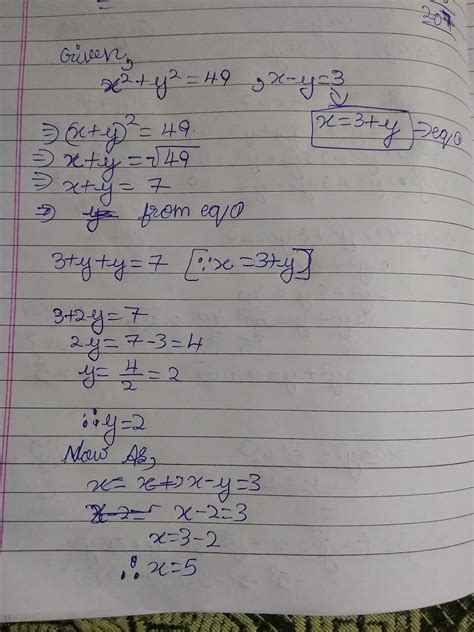 207
Given,
x²+y²=49 , x-y=3
⇒ (x+y)²=49 x=3+y ⇒eq①
⇒ x+y=√49
⇒ x+y=7
⇒ from eq①
3+y+y=7 [∵x=3+y]
3+2y=7
2y=7-3=4
y=4/2=2
∴y=2
Now As,
x= x+ x-y=3
x-2= x-2=3
x=3-2
∴ x=5